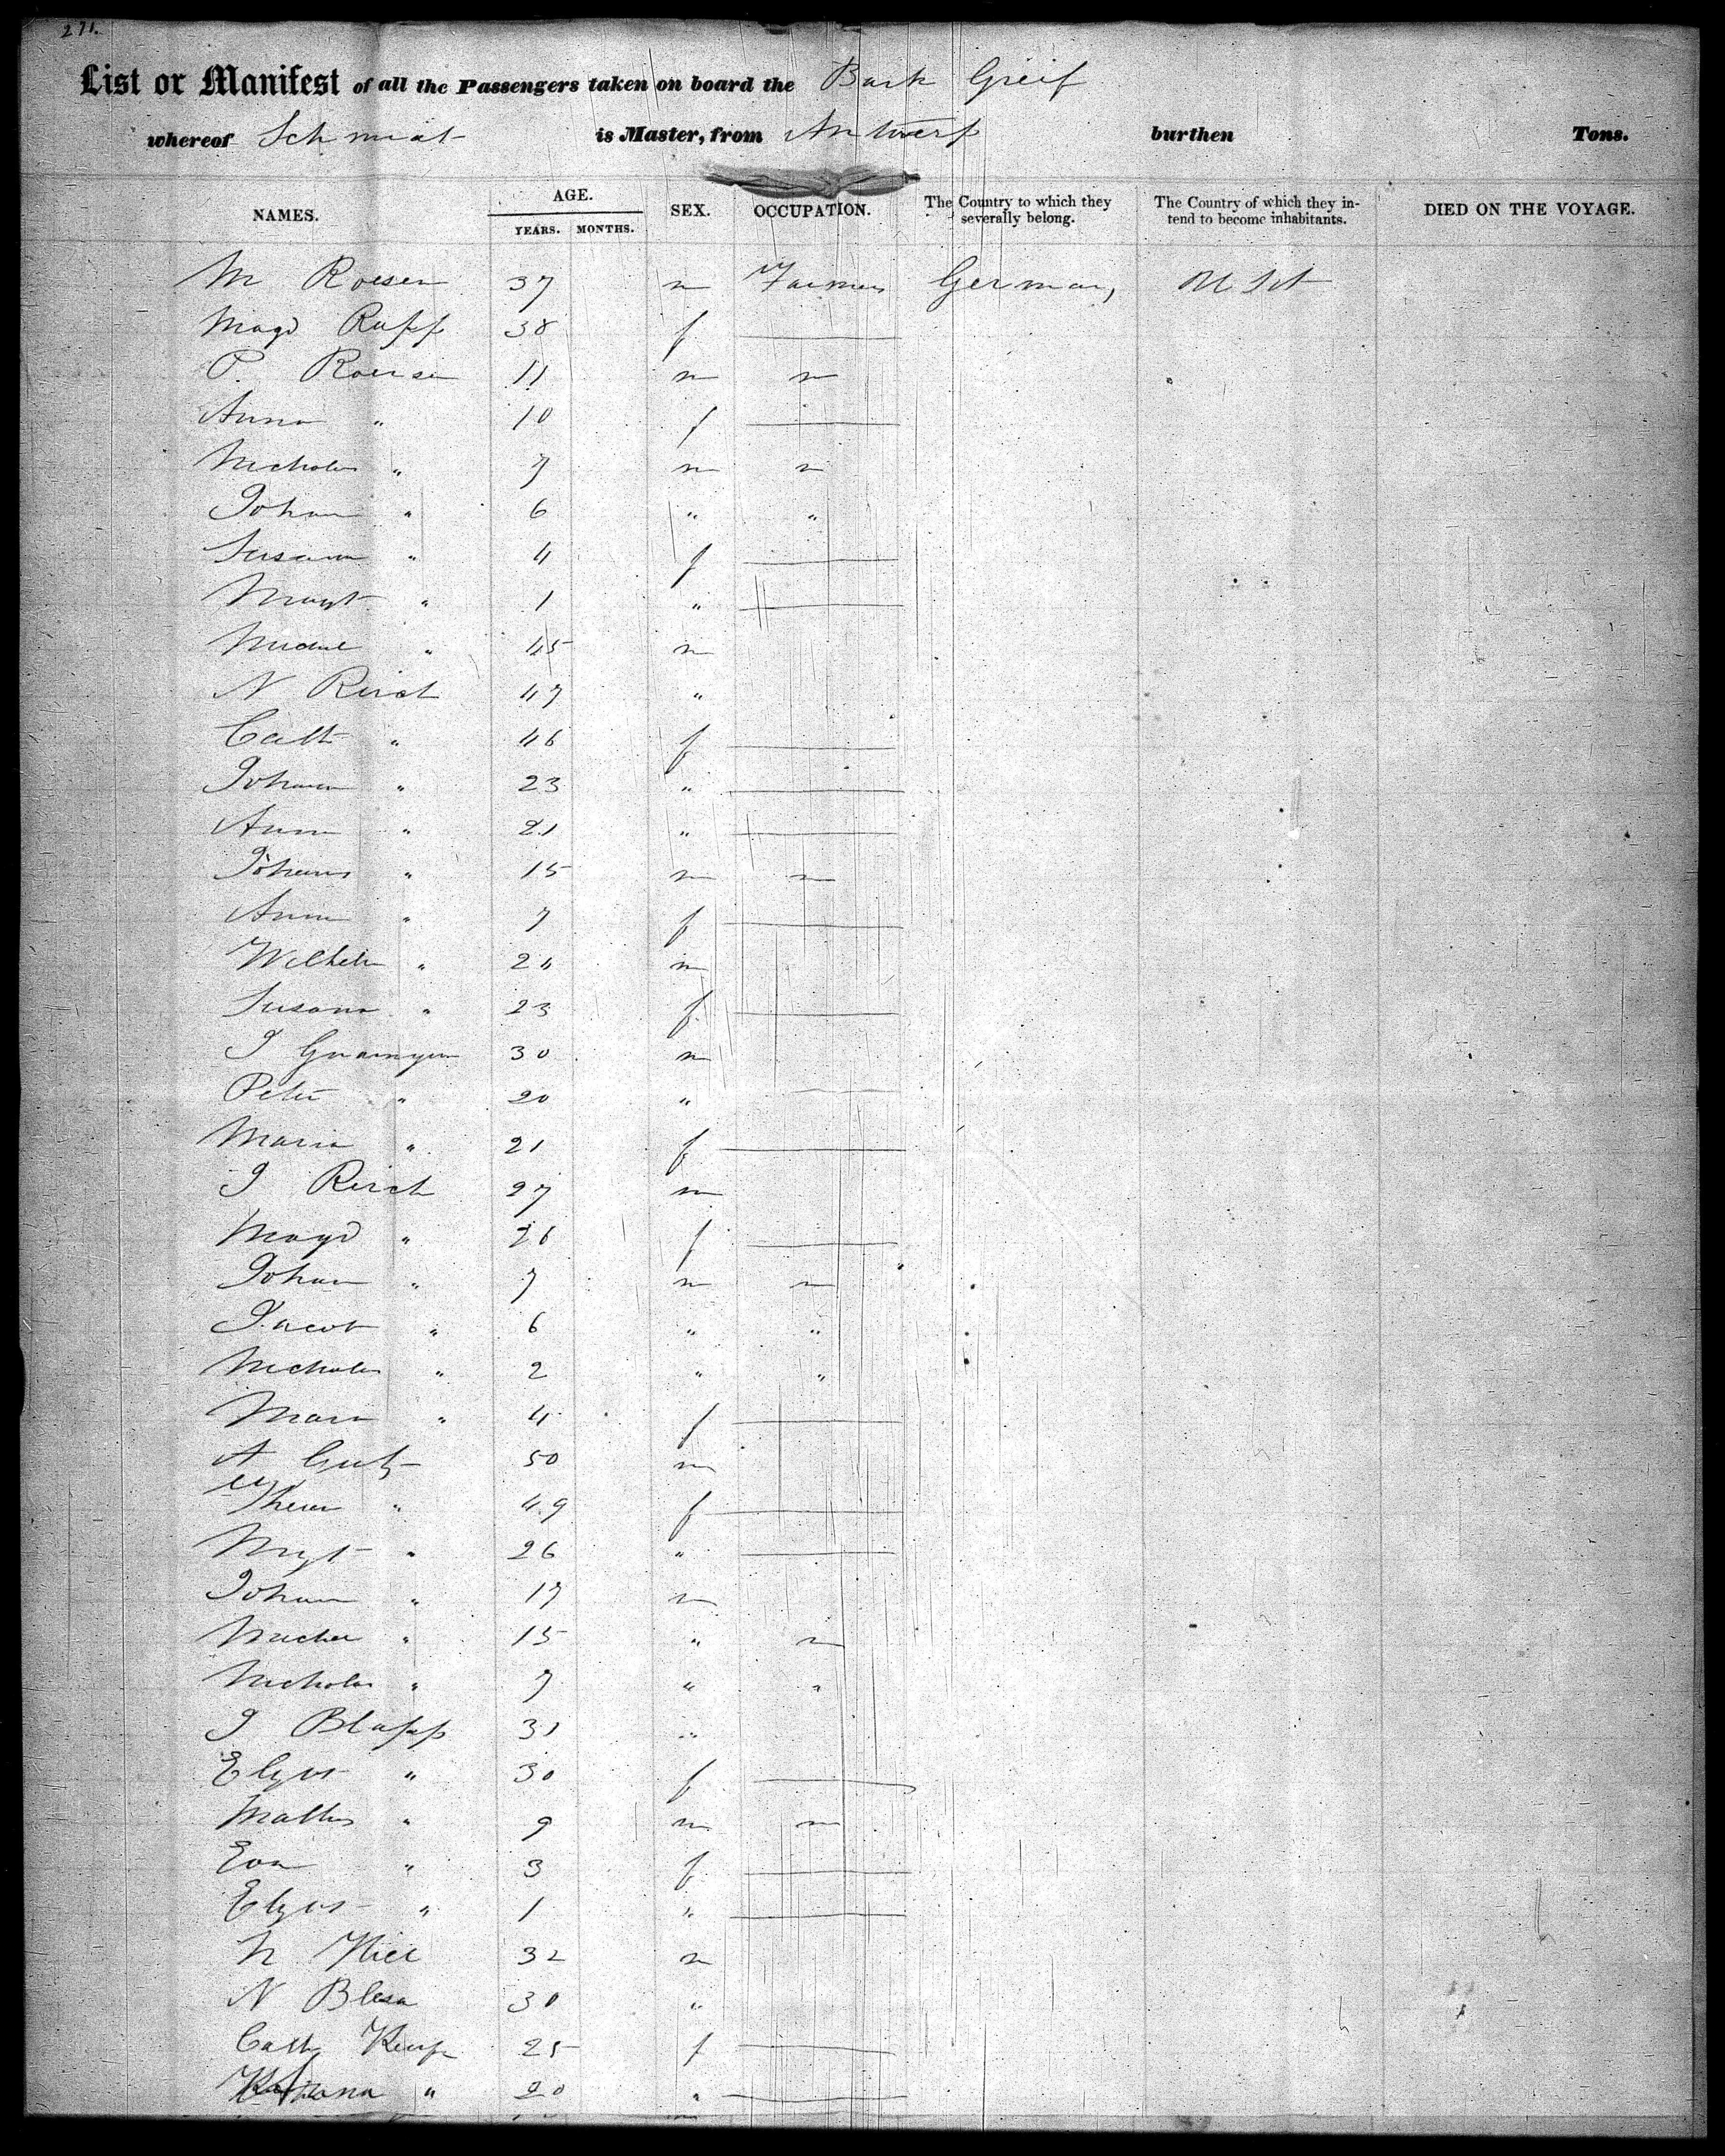 271.
List or Manifest of all the Passengers taken on board the Bark Greif
whereof Schmidt is Master, from Antwerp burthen Tons.
NAMES. AGE. YEARS. MONTHS. SEX. OCCUPATION. The Country to which they severally belong. The Country of which they intend to become inhabitants. DIED ON THE VOYAGE.
M Roesen 37 m Farmer Germany U St
Magd Rapp 38 f —
P. Roesen 11 m m
Anna " 10 f —
Nicholas " 7 m m
Johann " 6 " "
Susann " 4 f —
Margt " 1 " —
Michel " 45 m
N 47 "
Cath " 46 f —
Johann " 23 " —
Anna " 21 " —
Johann " 15 m m
Anna " 7 f —
Wilhelm " 24 m
Susana " 23 f —
J 30 m
Peter " 20 "
Maria " 21 f —
J 27 m
Magd " 26 f —
Johann " 7 m m
Jacob " 6 " "
Nicholas " 2 " "
Mari " 4 f —
A 50 m
" 49 f —
Mrgt " 26 " —
Johann " 17 m
Michel " 15 " m
Nicholas " 7 " "
J Blapp 31 "
Elgst " 30 f —
Mathis " 9 m m
Eva " 3 f —
Elgst " 1 " —
N 32 m
N Blesa 30 "
Cath Kemp 25 f —
" 20 " —